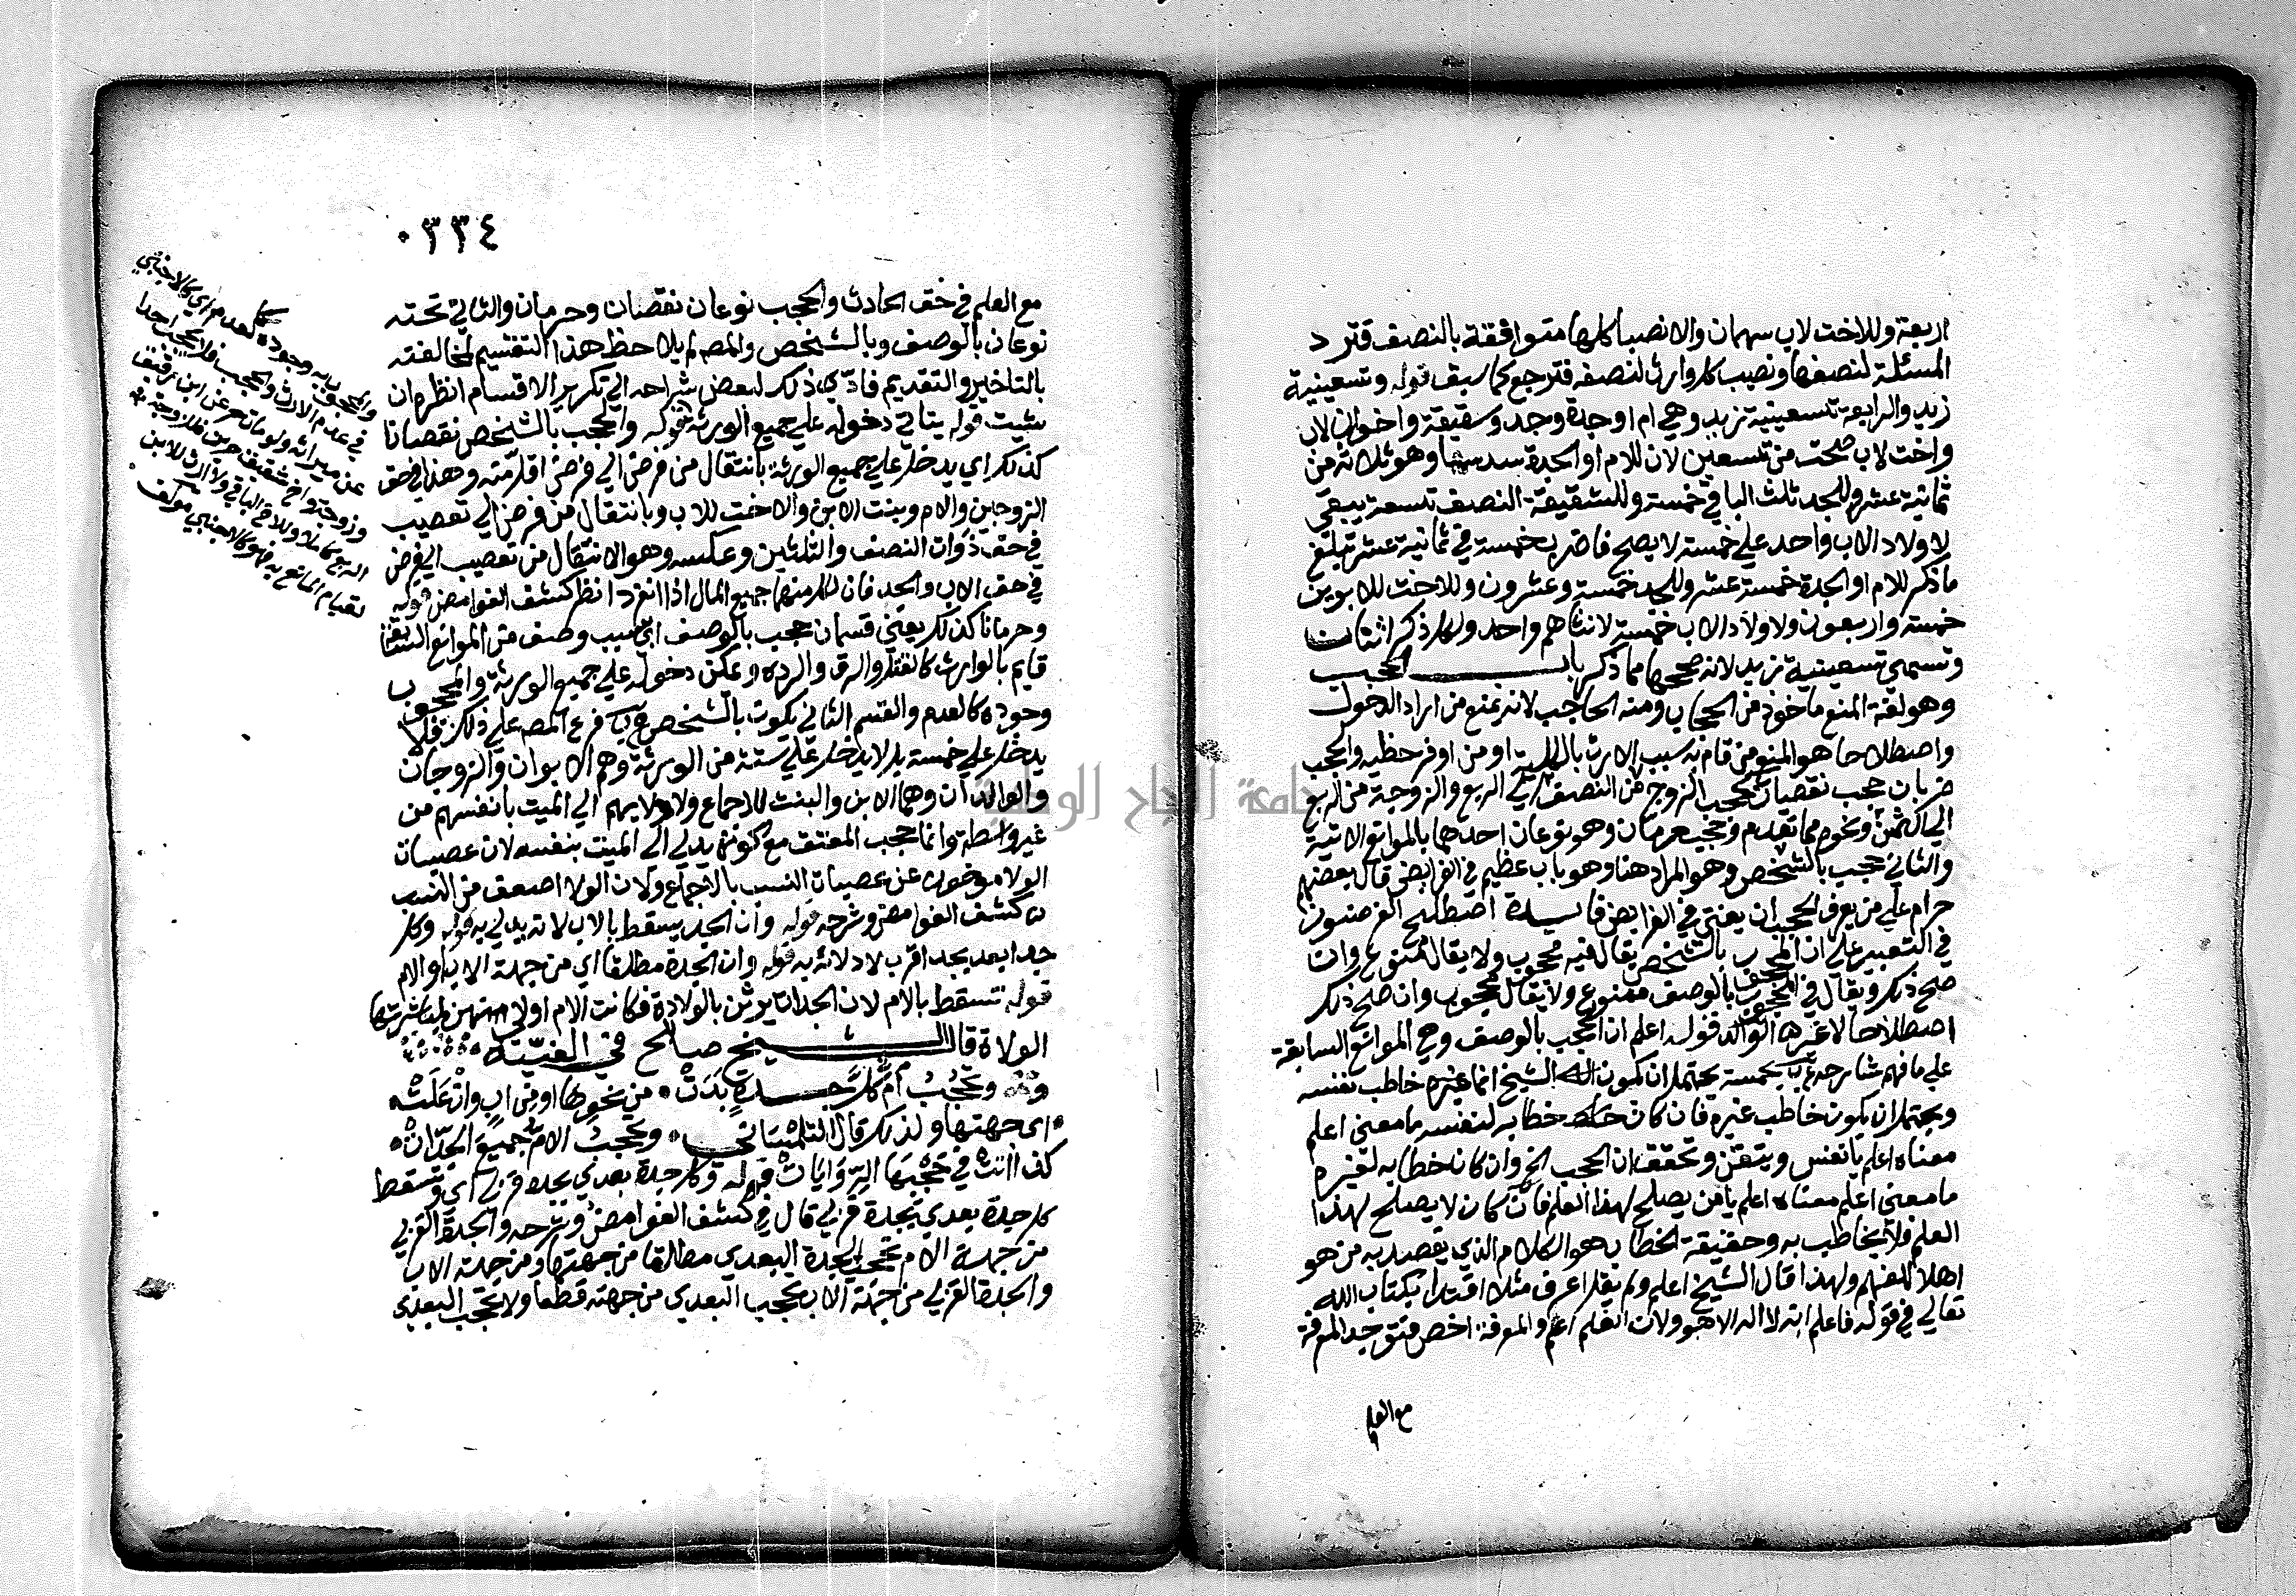 اربعة وللاخت لاب سهمان والانصبا كلها متوافقة بالنصف فترد
المسئلة لنصفها ونصيب كل وارث لنصفه فترجع لما سبق قوله وتسعينية
زيد والرابعة تسعينية زيد وهي ام او جدة وجد وشقيقة واخوان لاب
واخت لاب صحت من تسعين لان للام او الجدة سدسها وهو ثلاثة من
ثمانية عشر وللجد ثلث الباقي خمسة وللشقيقة النصف تسعة يبقى
لاولاد الاب واحد على خمسة لا يصح فاضرب خمسة في ثمانية عشر تبلغ
ما ذكر للام او الجدة خمسة عشر وللجد خمسة وعشرون وللاخت للابوين
خمسة واربعون ولاولاد الاب خمسة لانثاهم واحد ولكل ذكر اثنان
وتسمى تسعينية زيد لانه صححها مما ذكر باب الحجب
وهو لغة المنع ماخوذ من الحجاب ومنه الحاجب لانه يمنع من اراد الدخول
واصطلاحا هو المنع من قام به سبب الارث بالكلية او من اوفر حظيه والحجب
ضربان حجب نقصان كحجب الزوج من النصف الي الربع والزوجة من الربع
الي الثمن ونحوه مما تقدم وحجب حرمان وهو نوعان احدهما بالموانع الاتية
والثاني حجب بالشخص وهو المراد هنا وهو باب عظيم في الفرايض قال بعضهم
حرام على من لم يعرف الحجب ان يفتي في الفرايض فايدة اصطلح الفرضيون
في التعبير على ان المحجوب بالشخص يقال فيه محجوب ولا يقال ممنوع وان
صح ذلك ويقال في المحجوب بالوصف ممنوع ولا يقال محجوب وان صح ذلك
اصطلاحا لا غير قوله اعلم ان الحجب بالوصف وهي الموانع السابقة
على ما فهم شارحه يحتمل ان يكون الشيخ انما خاطب نفسه
ويحتمل ان يكون خاطب غيره فان كان خطابه لنفسه ما معنى اعلم
معناه اعلم يا نفس ويتقن وتحقق ان الحجب الخ وان كان خطابه لغيره
ما معنى اعلم معناه اعلم يا من يصلح لهذا العلم فان كان لا يصلح لهذا
العلم فلا يخاطب به وحقيقة الخطاب هو الكلام الذي يقصد به من هو
اهلا للفهم ولهذا قال الشيخ اعلم ولم يقل اعرف مثلا اقتدا بكتاب الله
تعالي في قوله فاعلم انه لا اله الا هو ولان العلم اعم والمعرفة اخص فتوجد المعرفة
مع العلم
٠٣٣٤
مع العلم في حق الحادث والحجب نوعان نقصان وحرمان والثاني تحته
نوعان بالوصف وبالشخص والمص لم يلاحظ هذا التقسيم لمخالفته
بالتاخير والتقديم فادي ذلك لبعض شراحه الي تكرير الاقسام انظره ان
شيت قوله يتاتي دخوله على جميع الورثة قوله والحجب بالشخص نقصانا
كذلك اي يدخل على جميع الورثة بانتقال من فرض الي فرض اقل منه وهذا في حق
الزوجين والام وبنت الابن والاخت للاب وبانتقال من فرض الي تعصيب
في حق ذوات النصف والثلثين وعكسه وهو الانتقال من تعصيب الي فرض
في حق الاب والجد فان لكل منهما جميع المال اذا انفرد انظر كشف الغوامض قوله
وحرمانا كذلك يعني قسمان حجب بالوصف اي بسبب وصف من الموانع السابقة
قايم بالوارث كالقتل والرق والردة ويمكن دخوله على جميع الورثة والمحجوب
وجوده كالعدم والقسم الثاني يكون بالشخص فرع المص على ذلك فلا
يدخل على خمسة بل لا يدخل على ستة من الورثة وهم الابوان والزوجان
والوالدان وهما الابن والبنت للاجماع ولادلايهم الي الميت بانفسهم من
غير واسطة وانما حجب المعتق مع كونه يدلي الي الميت بنفسه لان عصبات
الولا موخرة عن عصبات النسب بالاجماع ولان الولا اضعف من النسب
كشف الغوامض وشرحه قوله وان الجد يسقط بالاب لانه يدلي به قوله وكل
جد ابعد بجد اقرب لادلائه به قوله وان الجدة مطلقا اي من جهة الاب او الام
قوله تسقط بالام لان الجدات يرثن بالولادة فكانت الام اولي منهن لمباشرتها
الولادة قال الشيخ صالح في الفية
وتحجب ام كل جدة بدت من نحوها او من اب وان علت
اي جهتها ولذلك قال التلمساني وتحجب الام جميع الجدات
كذا اتت في حجبها الروايات قوله وكل جدة بعدي بجدة قربي اي وتسقط
كل جدة بعدي بجدة قربي قال في كشف الغوامض وشرحه والجدة القربي
من جهة الام تحجب الجدة البعدي مطلقا من جهتها ومن جهة الاب
والجدة القربي من جهة الاب تحجب البعدي من جهته قطعا ولا تحجب البعدي
والمحجوب به وجوده كالعدم اي كالاجنبي
في عدم الارث والحجب فلا يحجب احدا
عن ميراثه ولو مات حر عن ابن رقيق
وزوجة واخ شقيق حرين فللزوجة
الربع كاملا وللاخ الباقي ولا ارث للابن
لقيام المانع به فهو كالاجنبي مولف
جامعة النجاح الوطنية